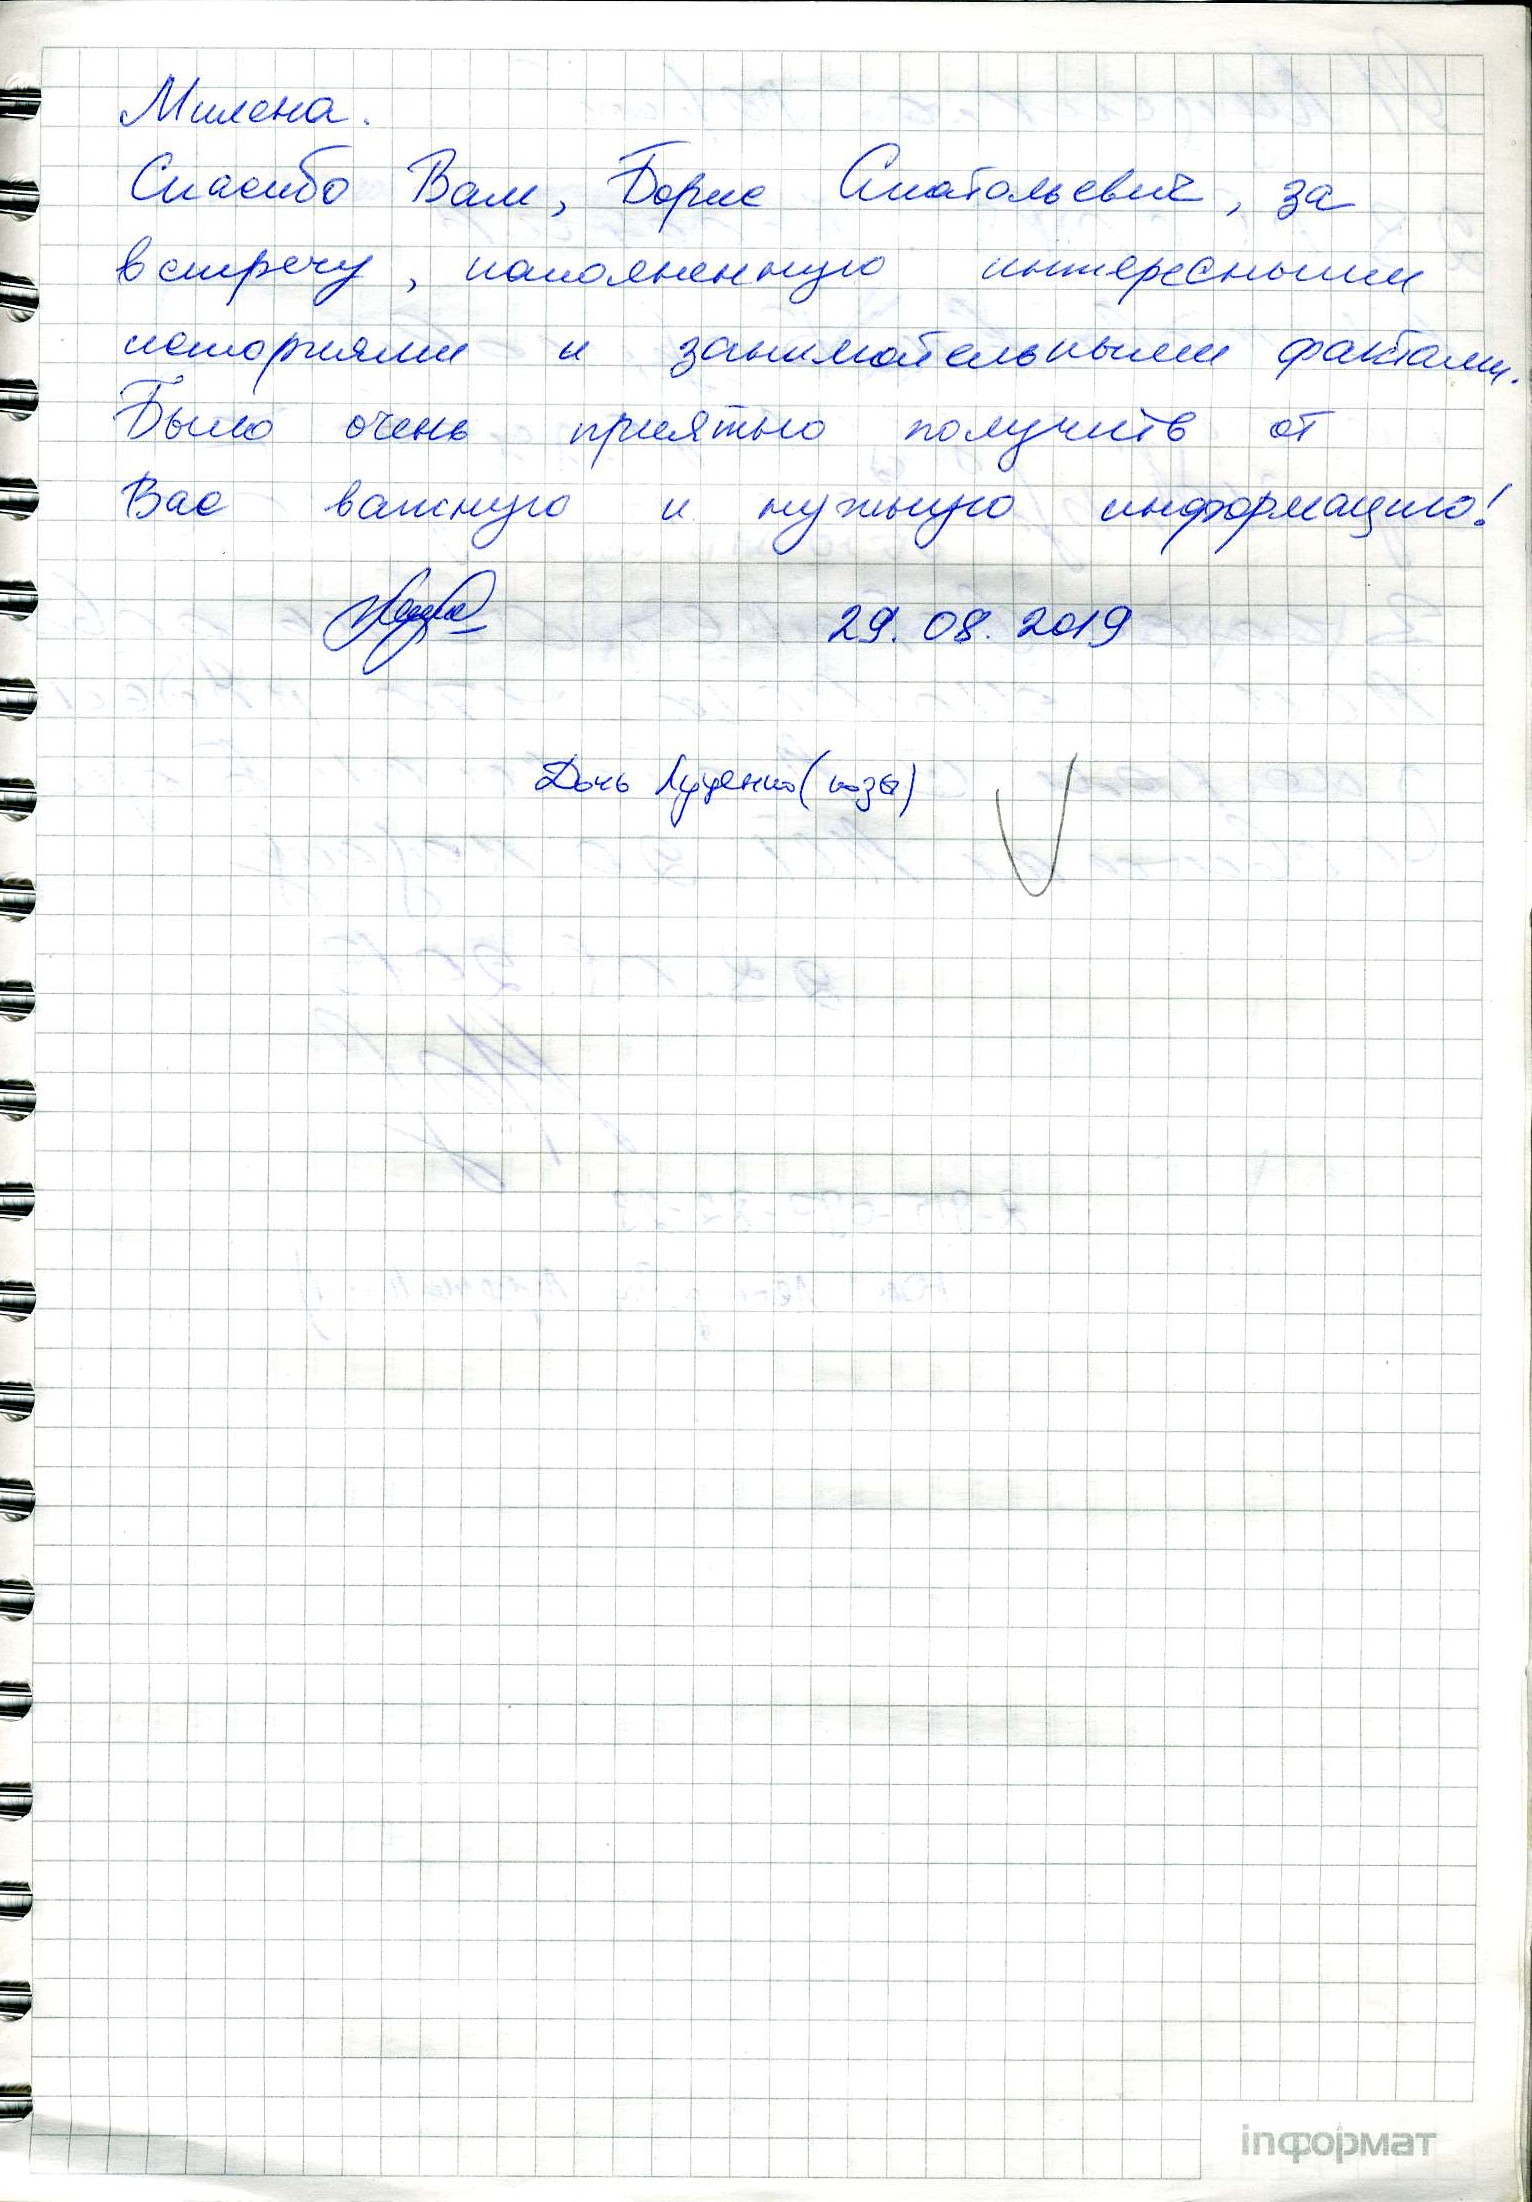 Милена.
Спасибо Вам, Борис Анатольевич, за
встречу, наполненную интересными
историями и занимательными фактами.
Было очень приятно получить от
Вас важную и нужную информацию!
29.08.2019
Дочь Луценко (козы)
inформат